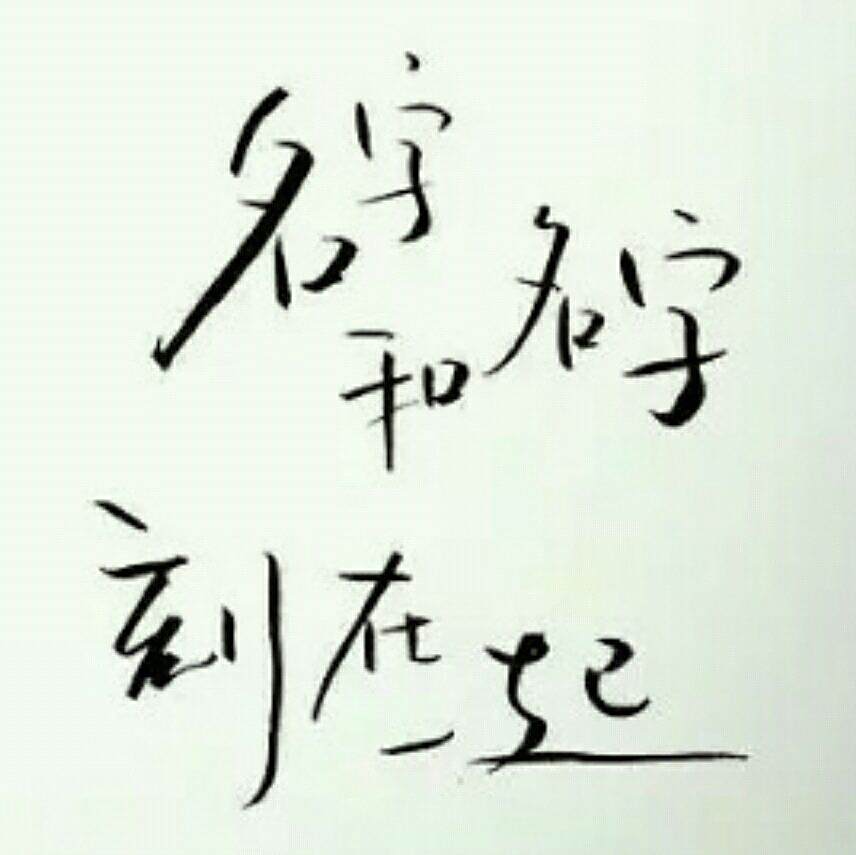 名字和名字
刻在一起